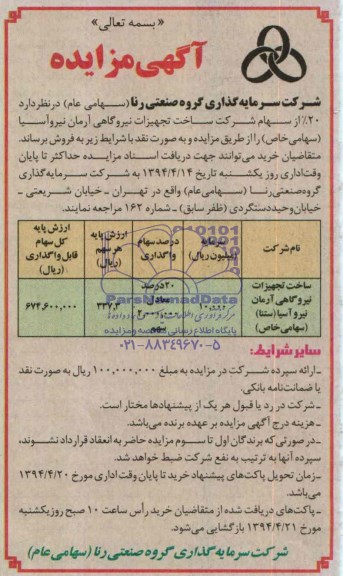 «بسمه تعالی»
آگهی مزایده
شرکت سرمایه‌گذاری گروه صنعتی رنا (سهامی عام) در نظر دارد
۲۰٪ از سهام شرکت ساخت تجهیزات نیروگاهی آرمان نیرو آسیا
(سهامی خاص) را از طریق مزایده و به صورت نقد با شرایط زیر به فروش برساند.
متقاضیان خرید می‌توانند جهت دریافت اسناد مزایده حداکثر تا پایان
وقت اداری روز یکشنبه تاریخ ۱۳۹۴/۴/۱۴ به شرکت سرمایه‌گذاری
گروه صنعتی رنا (سهامی عام) واقع در تهران ـ خیابان شریعتی ـ
خیابان وحید دستگردی (ظفر سابق) ـ شماره ۱۶۲ مراجعه نمایند.
نام شرکت
سرمایه (میلیون ریال)
درصد سهام واگذاری
ارزش پایه هر سهم (ریال)
ارزش پایه کل سهام قابل واگذاری (ریال)
ساخت تجهیزات نیروگاهی آرمان نیرو آسیا (ستنا) (سهامی خاص)
۲۰ درصد معادل
سهم
۶۷۴,۶۰۰,۰۰۰
ParsNamadData
پایگاه اطلاع رسانی مناقصه و مزایده
۰۲۱-۸۸۳۴۹۶۷۰-۵
سایر شرایط:
ـ ارائه سپرده شرکت در مزایده به مبلغ ۱۰۰,۰۰۰,۰۰۰ ریال به صورت نقد
یا ضمانت‌نامه بانکی.
ـ شرکت در رد یا قبول هر یک از پیشنهادها مختار است.
ـ هزینه درج آگهی مزایده بر عهده برنده می‌باشد.
ـ در صورتی که برندگان اول تا سوم مزایده حاضر به انعقاد قرارداد نشوند،
سپرده آنها به ترتیب به نفع شرکت ضبط خواهد شد.
ـ زمان تحویل پاکت‌های پیشنهاد خرید تا پایان وقت اداری مورخ ۱۳۹۴/۴/۲۰
می‌باشد.
ـ پاکت‌های دریافت شده از متقاضیان خرید رأس ساعت ۱۰ صبح روز یکشنبه
مورخ ۱۳۹۴/۴/۲۱ بازگشایی می‌شود.
شرکت سرمایه گذاری گروه صنعتی رنا (سهامی عام)